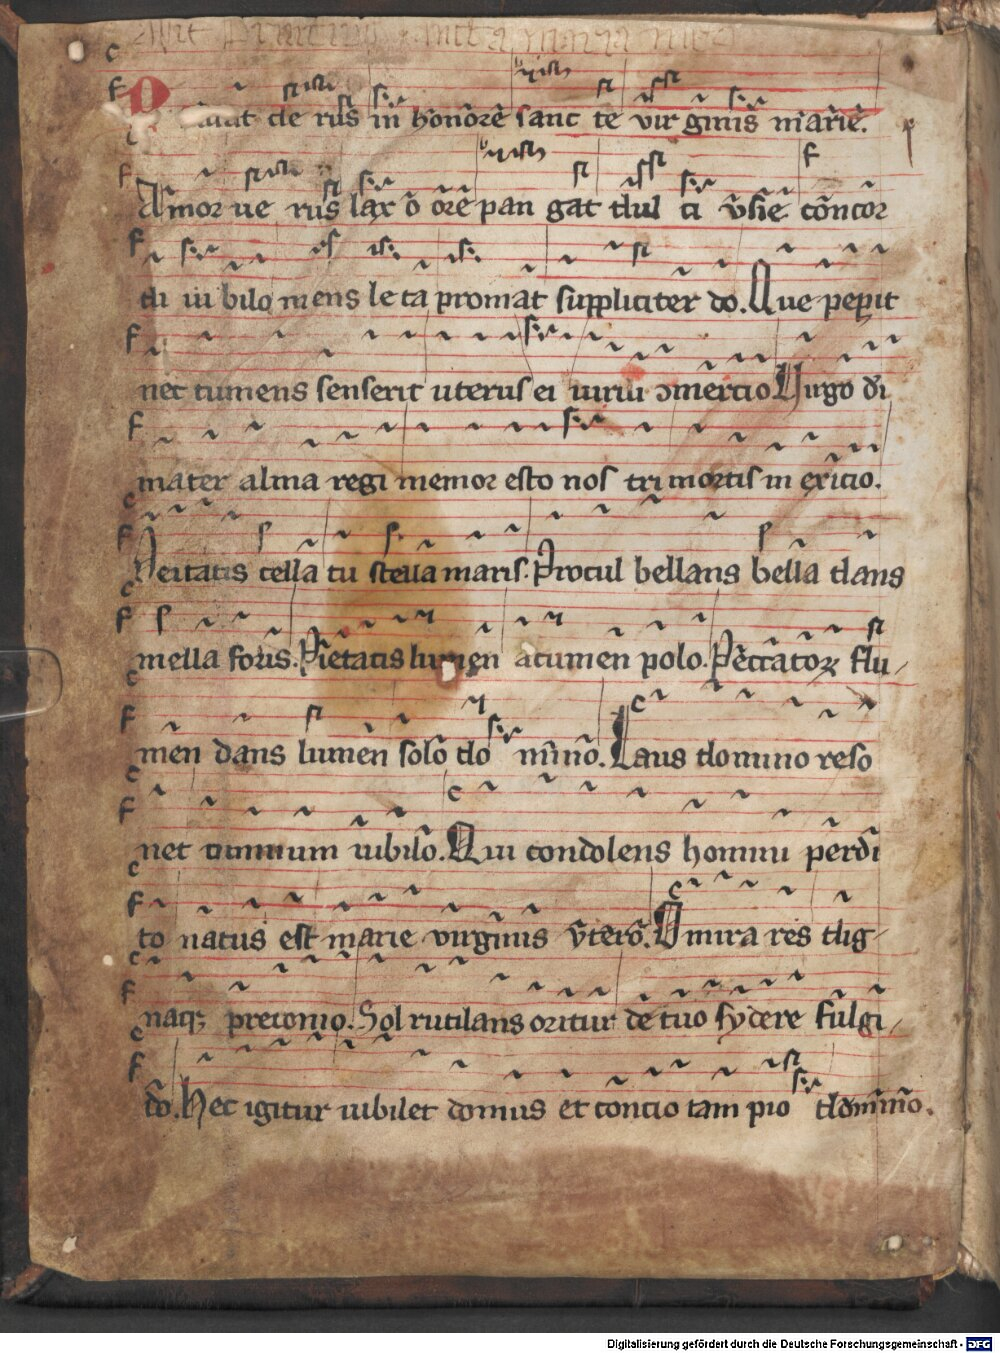 cle rus in honore sanc te vir ginis marie.
Amor ve rus lax o ore pan gat dul ci v̄sie concor
di iu bilo mens leta promat suppliciter do. Que pepit
nec tumens senserit uterus ei uirili ɔmercio Virgo dī
mater alma regi memor esto nos tri mortis in exicio.
cella tu stella maris. Procul bellans bella dans
mella foris. Pietatis lumen acumen polo. Peccatorꝝ flu/
men dans lumen solo do mino. Laus domino reso
net omnium iubilo. Qui condolens homini perdi
to natus est marie virginis vtero. O mira res dig
naqꝫ preconio. Sol rutilans oritur de tuo sydere fulgi/
do. Hec igitur iubilet domus et concio tam pio domino.
Digitalisierung gefördert durch die Deutsche Forschungsgemeinschaft - DFG